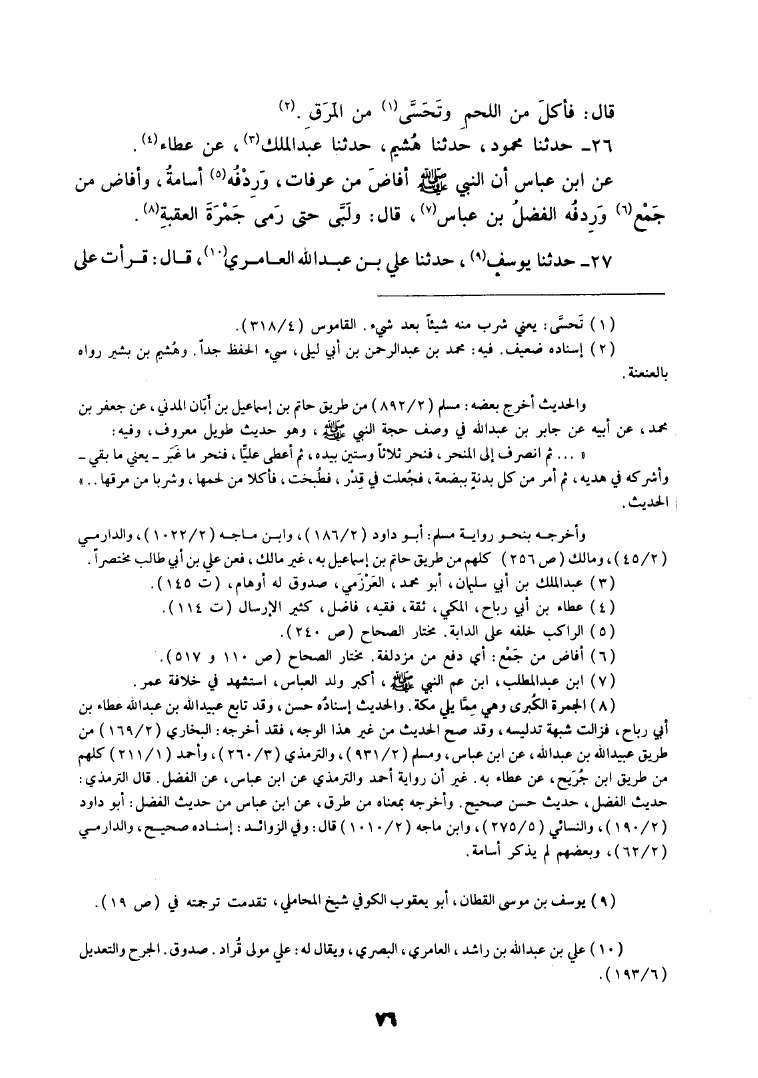 قال: فأكلَ من اللحمِ وتَحَسَّى(١) من المَرَقِ .(٢)
٢٦ـ حدثنا محمود، حدثنا هُشيم، حدثنا عبدالملك(٣)، عن عطاء(٤).
عن ابن عباس أن النبي ﷺ أفاضَ من عرفات، وَرِدْفُه(٥) أسامةُ، وأفاض من
جَمْع(٦) وَرِدفُه الفضلُ بن عباس(٧)، قال: ولَبَّى حتى رَمى جَمْرَةَ العقبةِ(٨).
٢٧ـ حدثنا يوسف(٩)، حدثنا علي بن عبدالله العامري(١٠)، قال: قرأت على
(١) تَحسَّى: يعني شرب منه شيئاً بعد شيء. القاموس (٣١٨/٤).
(٢) إسناده ضعيف. فيه: محمد بن عبدالرحمن بن أبي ليلى، سيء الحفظ جداً. وهُشيم بن بشير رواه
بالعنعنة.
والحديث أخرج بعضه: مسلم (٨٩٢/٢) من طريق حاتم بن إسماعيل بن أبَان المدني، عن جعفر بن
محمد، عن أبيه عن جابر بن عبدالله في وصف حجة النبي ﷺ، وهو حديث طويل معروف، وفيه:
« ... ثم انصرف إلى المنحر، فنحر ثلاثاً وستين بيده، ثم أعطى عليَّا، فنحر ما غَبَر ـ يعني ما بقي ـ
وأشركه في هديه، ثم أمر من كل بدنةٍ ببضعة، فجُعلت في قِدْر، فطُبخت، فأكلا من لحمها، وشربا من مرقها ..»
الحديث.
وأخرجه بنحو رواية مسلم: أبو داود (١٨٦/٢)، وابن ماجه (١٠٢٢/٢)، والدارمي
(٤٥/٢)، ومالك (ص ٢٥٦) كلهم من طريق حاتم بن إسماعيل به، غير مالك، فعن علي بن أبي طالب مختصراً.
(٣) عبدالملك بن أبي سليمان، أبو محمد، العَرْزَمي، صدوق له أوهام، (ت ١٤٥).
(٤) عطاء بن أبي رباح، المكي، ثقة، فقيه، فاضل، كثير الإرسال (ت ١١٤).
(٥) الراكب خلفه على الدابة. مختار الصحاح (ص ٢٤٠).
(٦) أفاض من جَمْع: أي دفع من مزدلفة. مختار الصحاح (ص ١١٠ و ٥١٧).
(٧) ابن عبدالمطلب، ابن عم النبي ﷺ، أكبر ولد العباس، استشهد في خلافة عمر.
(٨) الجمرة الكُبرى وهي مِمَّا يلي مكة. والحديث إسنادُه حسن، وقد تابع عبيدالله بن عبدالله عطاء بن
أبي رباح، فزالت شبهة تدليسه، وقد صح الحديث من غير هذا الوجه، فقد أخرجه: البخاري (١٦٩/٢) من
طريق عبيدالله بن عبدالله، عن ابن عباس، ومسلم (٩٣١/٢)، والترمذي (٢٦٠/٣)، وأحمد (٢١١/١) كلهم
من طريق ابن جُرَيح، عن عطاء به. غير أن رواية أحمد والترمذي عن ابن عباس، عن الفضل. قال الترمذي:
حديث الفضل، حديث حسن صحيح. وأخرجه بمعناه من طرق، عن ابن عباس من حديث الفضل: أبو داود
(١٩٠/٢)، والنسائي (٢٧٥/٥)، وابن ماجه (١٠١٠/٢) قال: وفي الزوائد: إسناده صحيح، والدارمي
(٦٢/٢)، وبعضهم لم يذكر أسامة.
(٩) يوسف بن موسى القطان، أبو يعقوب الكوفي شيخ المحاملي، تقدمت ترجمته في (ص ١٩).
(١٠) علي بن عبدالله بن راشد، العامري، البصري، ويقال له: علي مولى قُراد. صدوق. الجرح والتعديل
(١٩٣/٦).
٧٦